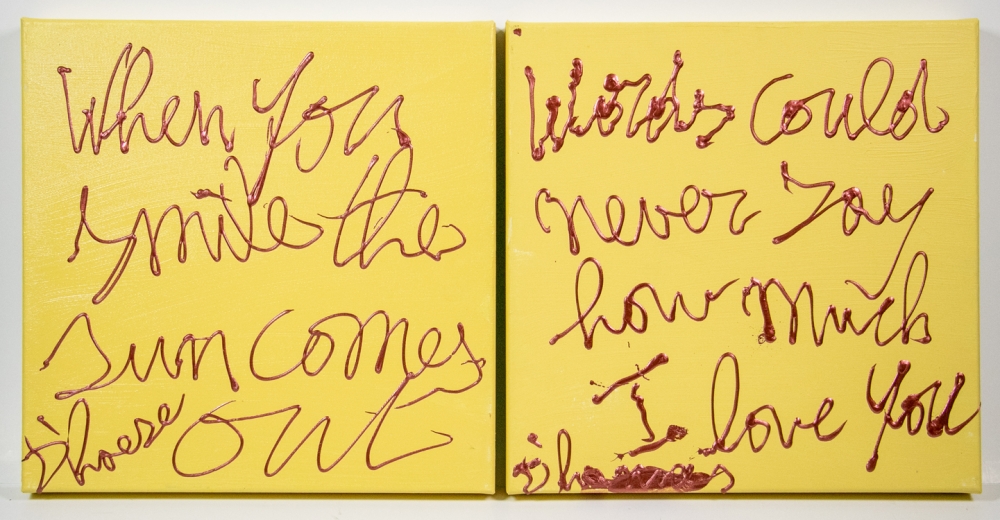 When You
smile the
sun comes
out
Words could
never say
how much
I love You